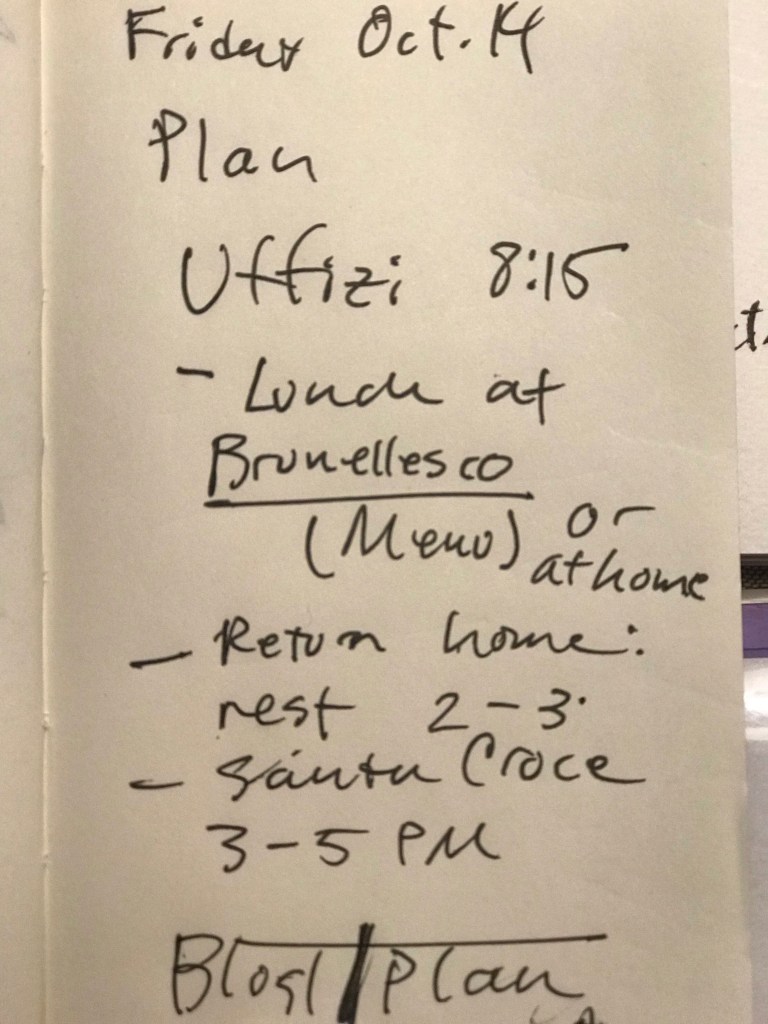 Friday Oct. 14
Plan
Uffizi 8:15
- Lunch at
Brunellesco
(Menu) or
at home
- Return home:
rest 2-3.
- Santa Croce
3-5 PM
Plan